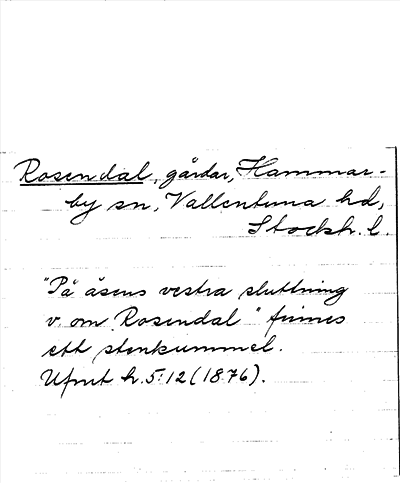 Rosendal, gårdar, Hammar-
by sn, Vallentuna hd,
Stockh. l.
"På åsens vestra sluttning
v. om Rosendal" finnes
ett stenkummel.
Ufmt h. 5:12 (1876).